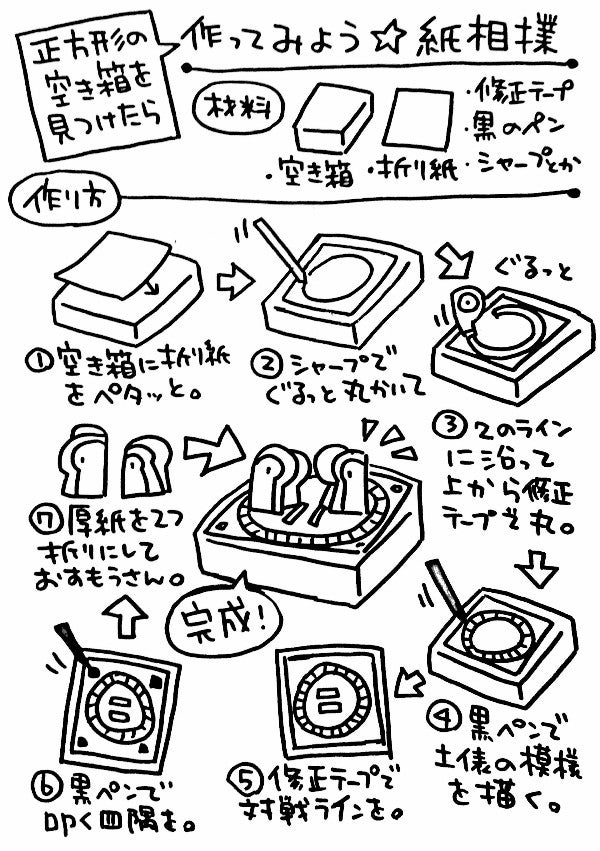 正方形の
空き箱を
見つけたら
作ってみよう☆紙相撲
材料
・空き箱
・折り紙
・修正テープ
・黒のペン
・シャープとか
作り方
①空き箱に折り紙
をペタッと。
②シャープで
ぐるっと丸かいて
ぐるっと
③そのラインに
に沿って
上から修正
テープで丸。
④黒ペンで
土俵の模様
を描く。
⑤修正テープで
対戦ラインを。
⑥黒ペンで
叩く四隅を。
⑦厚紙を2つ
折りにして
おすもうさん。
完成!